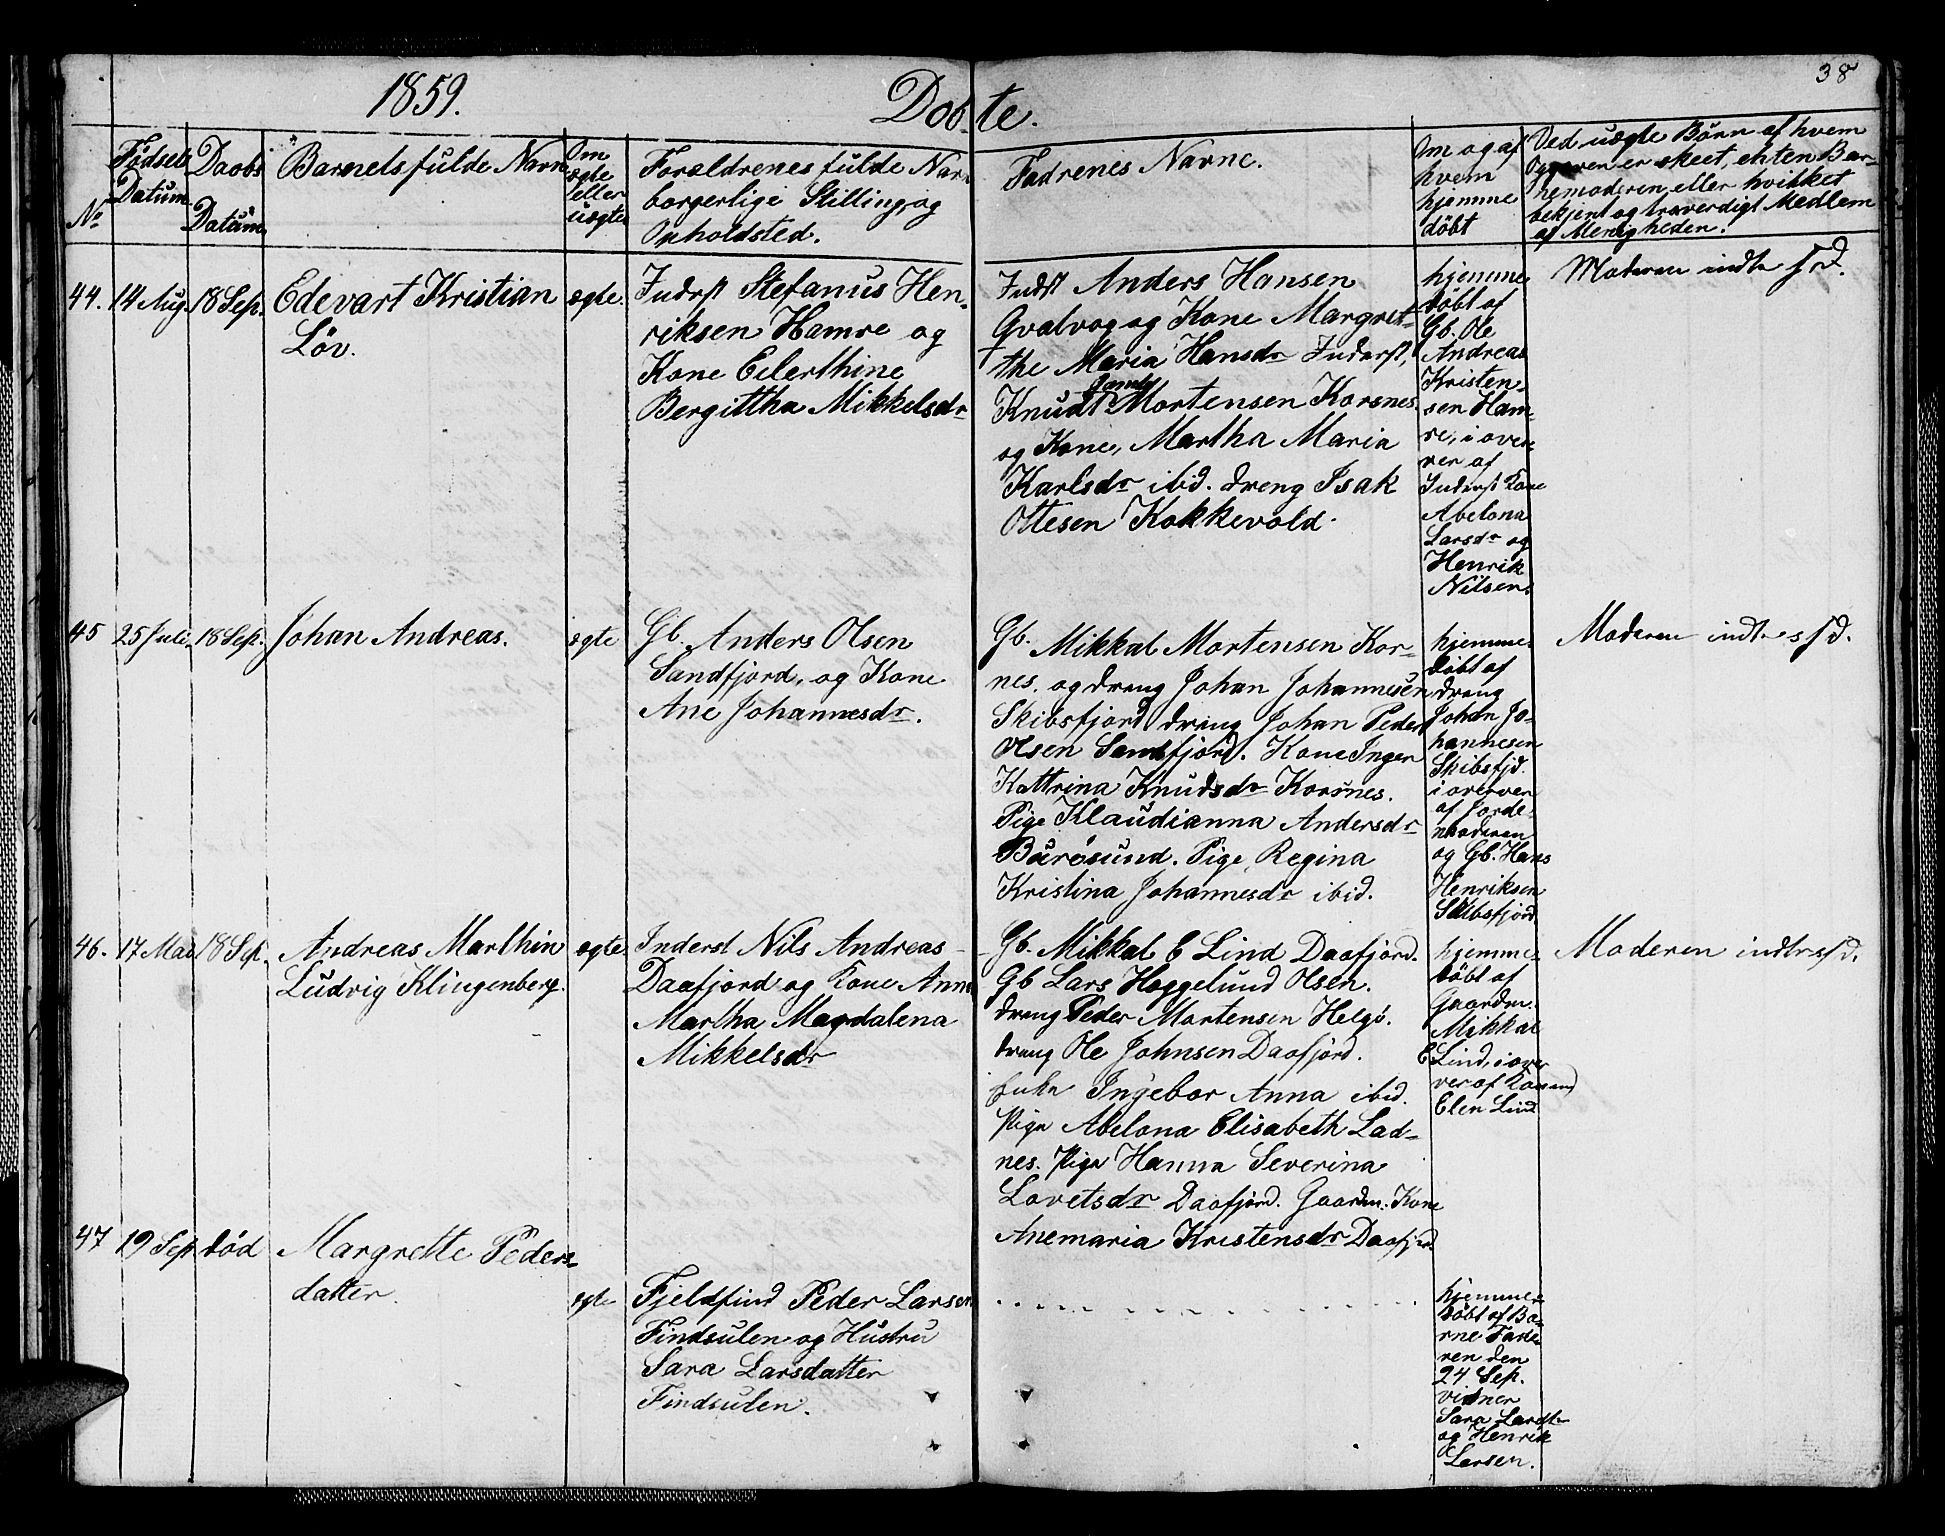 38
1859. Dobte.
No
Fødsels Datum
Daabs Datum
Barnets fulde Navn
Om ægte eller uægte
Forældrenes fulde Navn
borgerlige Stilling og
Opholdsted.
Fadrenes Navne.
Om og af
hvem
hjemme
døbt
Ved uægte Børn af hvem
Opgaven er skeet, enten Bar-
nemoderen eller hvilket
bekjent og troverdigt Medlem
af Menigheden.
44. 14 Aug. 18 Sep. Edevart Kristian
Løv.
ægte.
Inderst Stefanus Hen-
riksen Hamre og
Kone Eilerthine
Bergittha Mikkelsdr
Indst Anders Hansen
Qvalvog og Kone Margret-
the Maria Hansdr Inderst,
Knudt Mortensen Korsnes.
og Kone, Martha Maria
Karlsdr ibid. dreng Isak
Ottesen Kokkevold.
hjemme
døbt af
Gb. Ole
Andreas
Kristen-
sen Ham-
re, i over-
ver af
Inderst Kone
Abelona
Larsdr og
Henrik
Nilsen.
Moderen indtr. s. d.
45 25 Juli 18 Sep. Johan Andreas.
ægte
Gb. Anders Olsen
Sandfjord, og Kone
Ane Johannesdr.
Gb. Mikkal Mortensen Kor-
nes. og dreng Johan Johannesen
Skibsfjord dreng Johan Peder
Olsen Sandfjord. Kone Inger
Kattrina Knudsdr Korsnes.
Pige Klaudianna Andersdr
Burøsund. Pige Regina
Kristina Johannesdr ibid.
hjemme-
døbt af
dreng
Johan Jo-
hannesen
Skibsfjd.
i overver
af Jorde-
moderen
og Gb. Hans
Henriksen
Skibsfjord
Moderen indtr. s. d.
46. 17 Mai 18 Sep. Andreas Marthin
Ludvig Klingenberg.
ægte.
Inderst Nils Andreas
Daafjord og Kone Anne
Martha Magdalena
Mikkelsdr
Gb. Mikkal C Lind Daafjord.
Gb Lars Heggelund Olsen.
dreng Peder Mortensen Helgø.
dreng Ole Johnsen Daafjord.
Enke Ingebor Anna ibid.
Pige Abelona Elisabeth Lad-
nes. Pige Hanna Severina
Lovetsdr Daafjord. Gaardm. Kone
Anemaria Kristensdr Daafjord
hjemme-
døbt af
Gaardm.
Mikkal
C Lind, i over
ver af Konen
Elen Lind
Moderen indtr. s. d.
47 19 Sep død Margrette Peders-
datter.
ægte
Fjeldfind Peder Larsen
Findsulen og Hustru
Sara Larsdatter
Findsulen.
hjemme-
døbt af Ba-
rne Fade-
ren den
24 Sep.
vidner
Sara Larsdtr
og Henrik
Larsen.